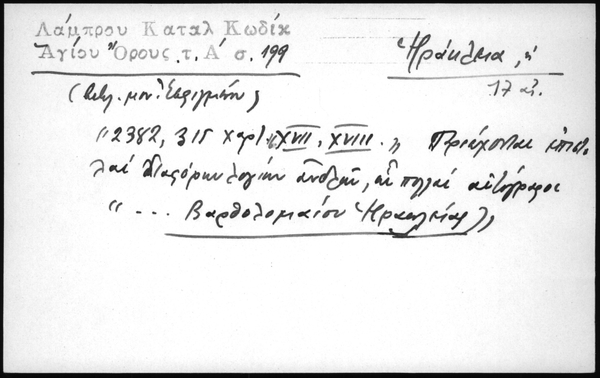 Λάμπρου Καταλ Κωδίκ
Ἁγίου Ὄρους τ. Α' σ. 199
Ἡράκλεια, ἡ
17 αἰ.
(βιβλ. μον. Ἐσφιγμένου)
"2382, 315 χαρτ. XVII, XVIII. " Περιέχονται ἐπιστο
λαί διαφόρων λογίων ἀνδρῶν, πολλαί αὐτόγραφοι
" ... Βαρθολομαίου Ἡρακλείας"